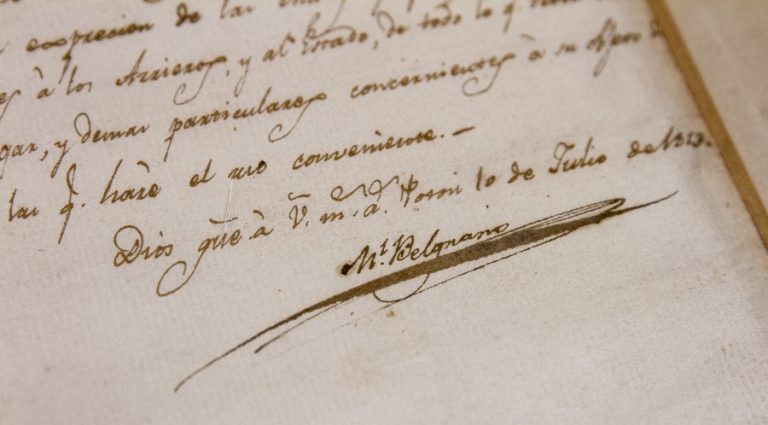 expresion de las
es à los Arrieros, y al Estado, de todo lo q.
gar, y demas particulares concernientes à su
las q. haré el uso conveniente.—
Dios gũe. à V. m.s a.s Potosi 10 de Julio de 1813.
M.l Belgrano